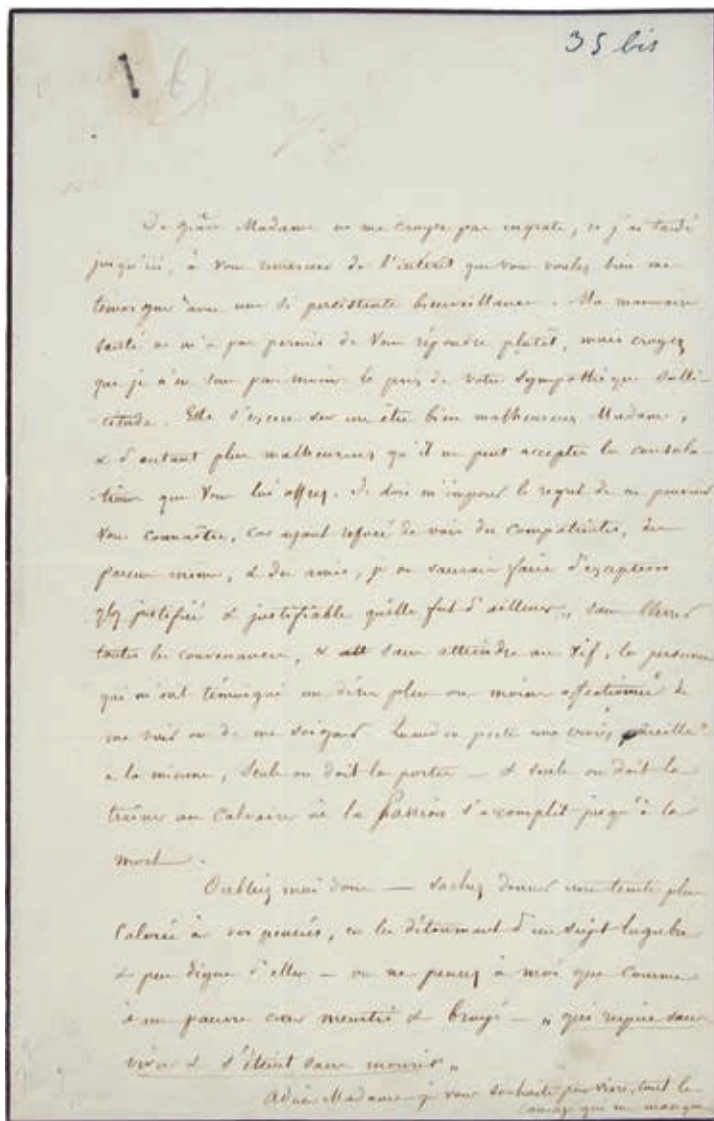 35 bis
De grâce Madame ne me croyez pas ingrate, si j'ai tardé
jusqu'ici, à vous remercier de l'intérêt que vous voulez bien me
témoigner avec une si persistante bienveillance. Ma mauvaise
santé ne m'a pas permis de vous répondre plutôt, mais croyez
que je n'en sens pas moins le prix de votre sympathique solli-
citude. Elle s'exerce sur un être bien malheureux Madame,
& d'autant plus malheureux qu'il ne peut accepter la consola-
tion que vous lui offrez. Je dois m'imposer le regret de ne pouvoir
vous connaître, car ayant refusé de voir des compatriotes, des
parens même, & des amis, je ne saurais faire d'exception
justifiée & justifiable qu'elle fut d'ailleurs, sans blesser
toutes les convenances, & sans atteindre au vif, les personnes
qui m'ont témoigné un désir plus ou moins affectionné de
me voir ou de me soigner Quand on porte une croix pareille
à la mienne, seule on doit la porter — & seule on doit la
traîner au Calvaire où la Passion s'accomplit jusqu'à la
mort.
Oubliez moi donc — sachez donner une teinte plus
colorée à vos pensées, en les détournant d'un sujet lugubre
& peu digne d'elles — ou ne pensez à moi que comme
à un pauvre cœur meurtri & broyé — „ qui respire sans
vivre & s'éteint sans mourir „
Adieu Madame je vous souhaite pour vivre, tout le
courage qui me manque